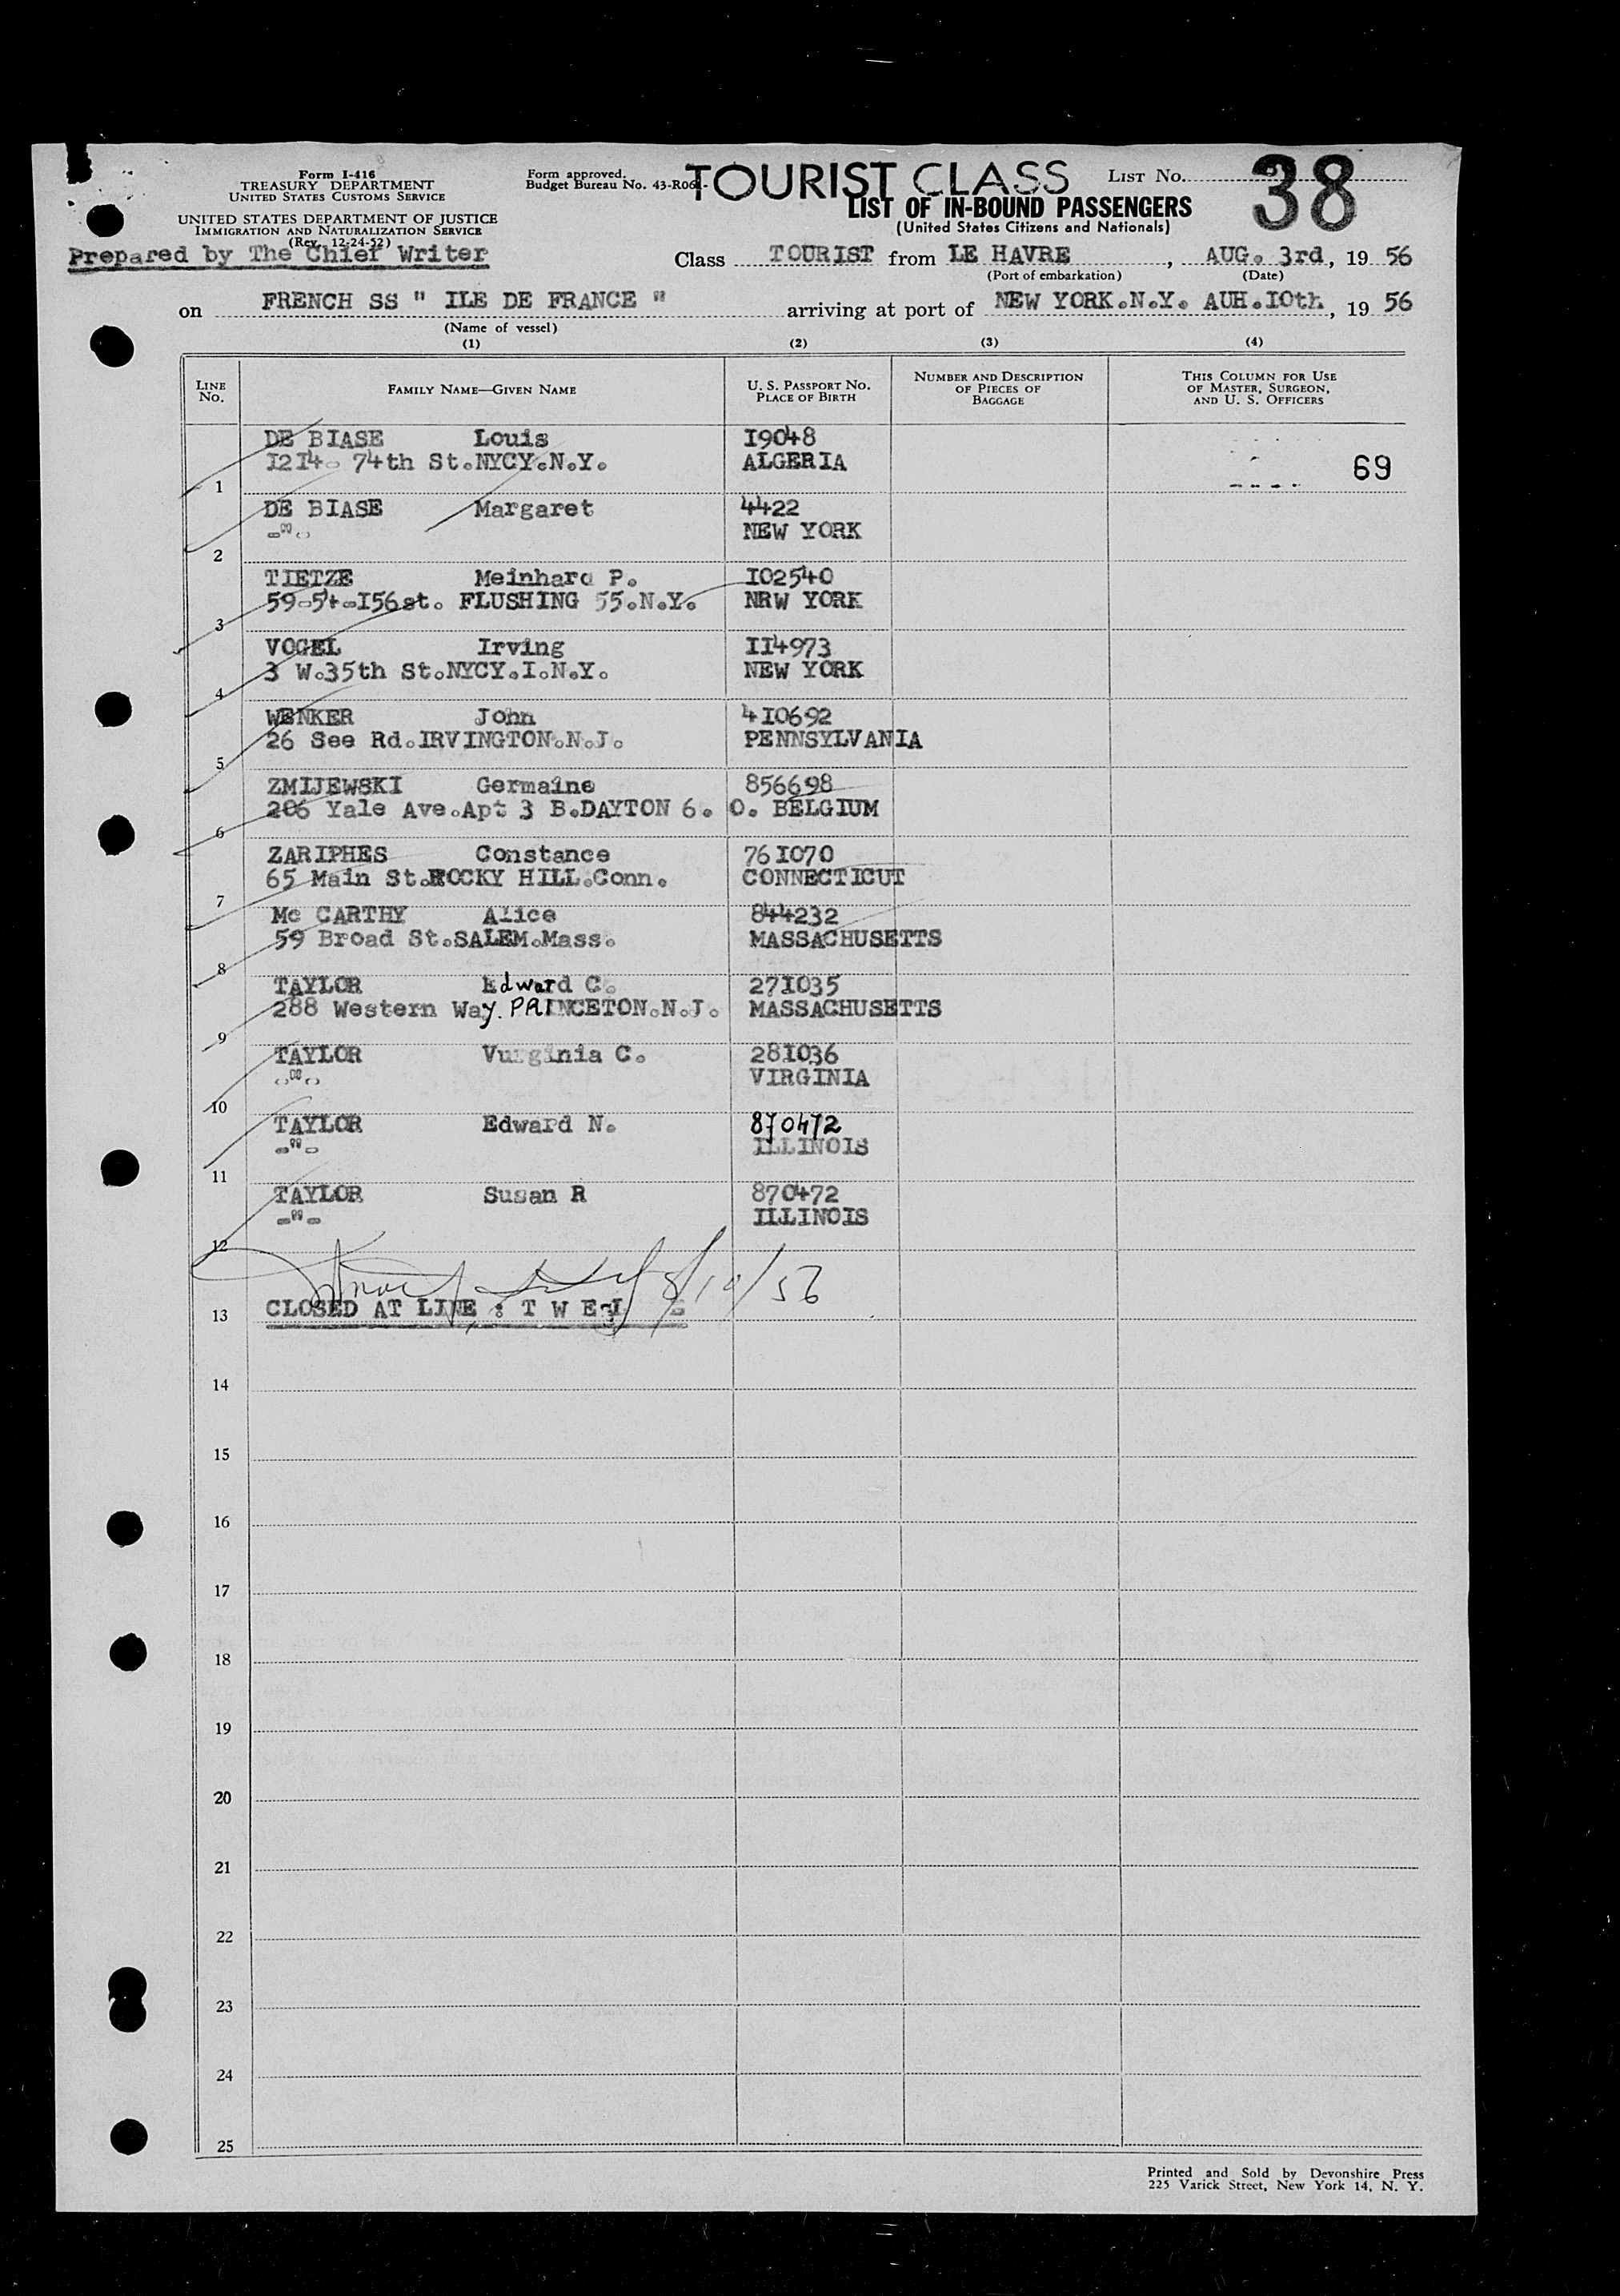 Form I-416
TREASURY DEPARTMENT
UNITED STATES CUSTOMS SERVICE
UNITED STATES DEPARTMENT OF JUSTICE
IMMIGRATION AND NATURALIZATION SERVICE
(Rev. 12-24-52)
Prepared by The Chief Writer
Form approved.
Budget Bureau No. 43-R06
TOURIST CLASS
LIST No. 38
LIST OF IN-BOUND PASSENGERS
(United States Citizens and Nationals)
Class TOURIST from LE HAVRE, AUG. 3rd, 19 56
(Port of embarkation) (Date)
on FRENCH SS " ILE DE FRANCE " arriving at port of NEW YORK.N.Y. AUH.IOth, 19 56
(Name of vessel)
(1) (2) (3) (4)
LINE No. FAMILY NAME—GIVEN NAME U. S. PASSPORT No. PLACE OF BIRTH NUMBER AND DESCRIPTION OF PIECES OF BAGGAGE THIS COLUMN FOR USE OF MASTER, SURGEON, AND U. S. OFFICERS
DE BIASE Louis I9048
I2I4- 74th St.NYCY.N.Y. ALGERIA 69
1
DE BIASE Margaret 4422
-"- NEW YORK
2
TIETZE Meinhard P. I02540
59-54-I56st. FLUSHING 55.N.Y. NRW YORK
3
VOGEL Irving II4973
3 W.35th St.NYCY.I.N.Y. NEW YORK
4
WENKER John 4I0692
26 See Rd.IRVINGTON.N.J. PENNSYLVANIA
5
ZMIJEWSKI Germaine 856698
206 Yale Ave.Apt 3 B.DAYTON 6. O. BELGIUM
6
ZARIPHES Constance 76I070
65 Main St.ROCKY HILL.Conn. CONNECTICUT
7
Mc CARTHY Alice 844232
59 Broad St.SALEM.Mass. MASSACHUSETTS
8
TAYLOR Edward C. 27I035
288 Western Way. PRINCETON.N.J. MASSACHUSETTS
9
TAYLOR Vurginia C. 28I036
-"- VIRGINIA
10
TAYLOR Edward N. 870472
-"- ILLINOIS
11
TAYLOR Susan R 870472
-"- ILLINOIS
12
8/10/56
13 CLOSED AT LINE : T W E L
14
15
16
17
18
19
20
21
22
23
24
25
Printed and Sold by Devonshire Press
225 Varick Street, New York 14, N. Y.